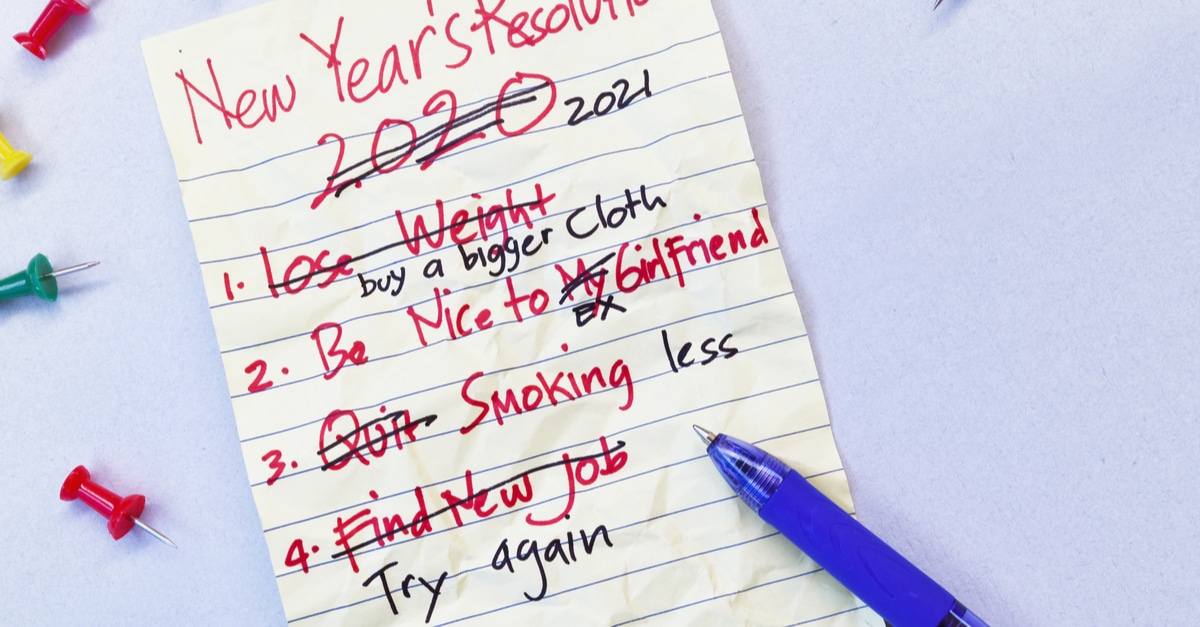 New Year's Resolutio
2020 2021
1. Lose Weight
buy a bigger Cloth
2. Be Nice to My Girlfriend
EX
3. Quit Smoking less
4. Find New Job
Try again